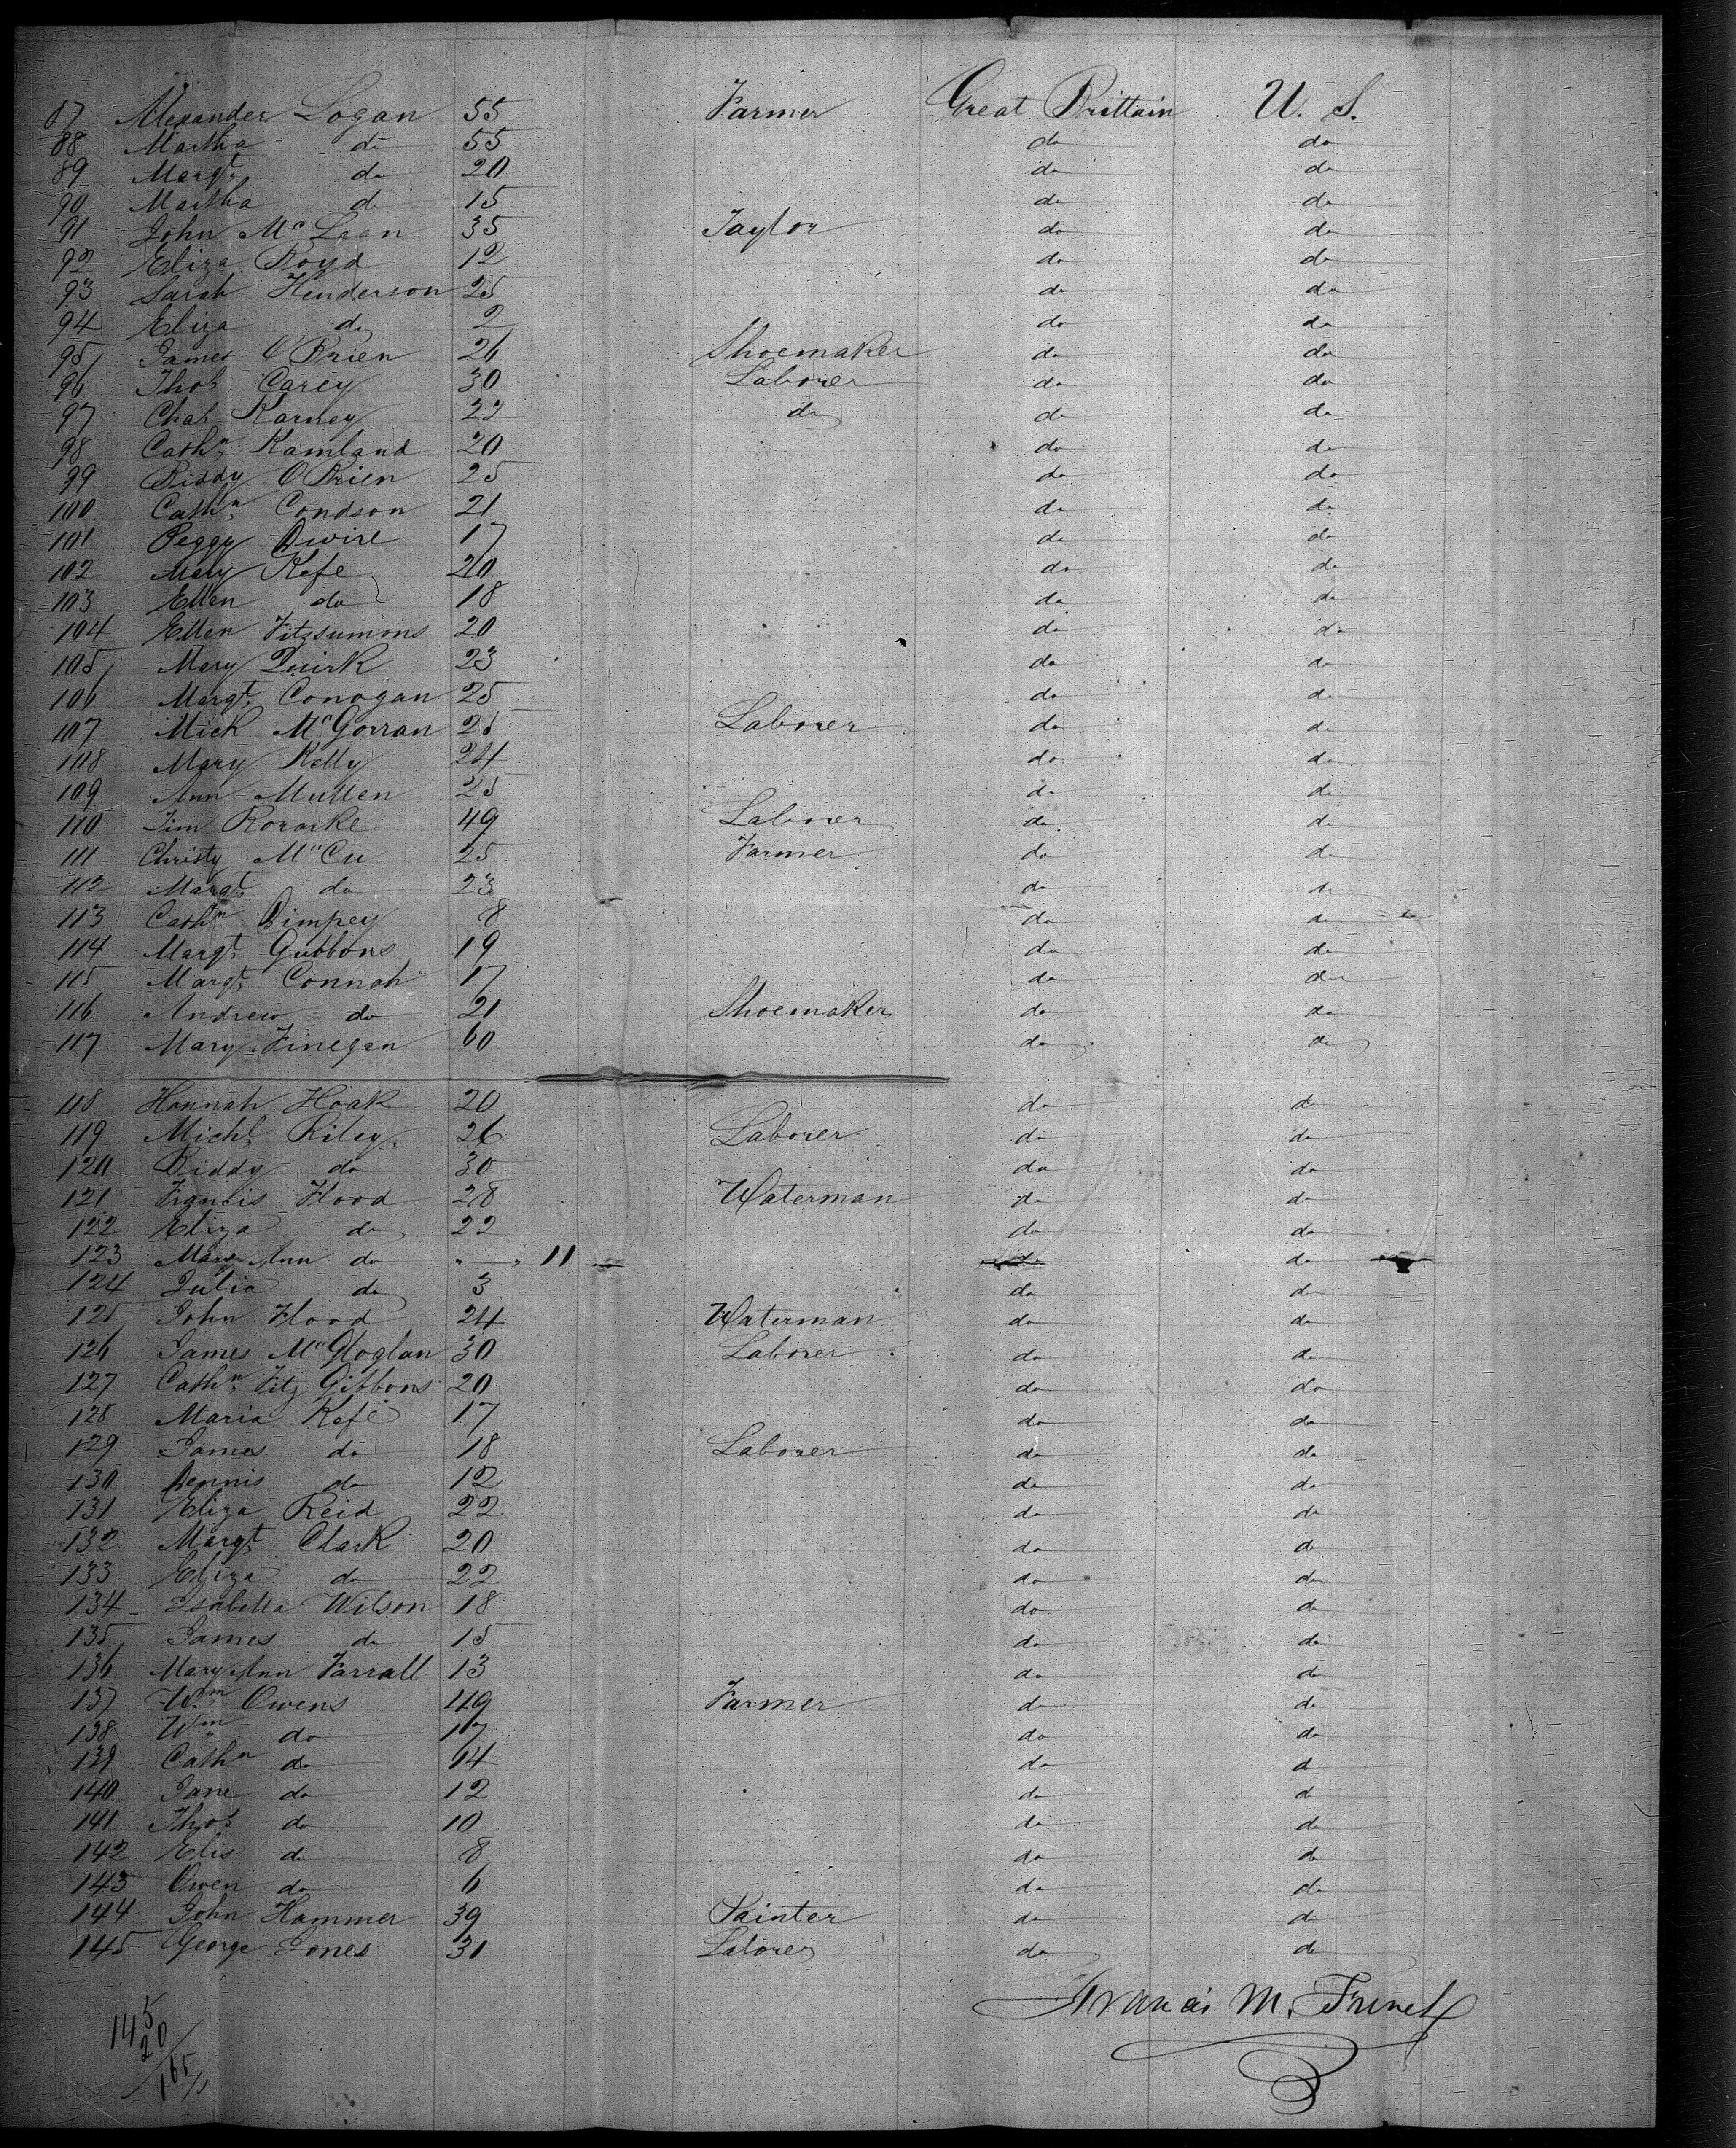 87 Alexander Logan 55 Farmer Great Brittain U. S.
88 Martha do 55 do do
89 Margt. do 20 do do
90 Martha do 15 do do
91 John McLean 35 Taylor do do
92 Eliza Boyd 12 do do
93 Sarah Henderson 25 do do
94 Eliza do 2 do do
95 James O'Brien 26 Shoemaker do do
96 Thos Carey 30 Laborer do do
97 Chas Karney 22 do do do
98 Cathn. Kamland 20 do do
99 Biddy O'Brien 25 do do
100 Cathn. Condson 21 do do
101 Peggy Dwire 17 do do
102 Mary Kefe 20 do do
103 Ellen do 18 do do
104 Ellen Fitzsumons 20 do do
105 Mary Quirk 23 do do
106 Margt. Conogan 25 do do
107 Mick McGorran 25 Laborer do do
108 Mary Kelly 24 do do
109 Ann Mullen 25 do do
110 Jim Rorarke 49 Laborer do do
111 Christy McCu 25 Farmer do do
112 Margt. do 23 do do
113 Cathn Dimpey 8 do do
114 Margt. Gubbons 19 do do
115 Margt. Connah 17 do do
116 Andrew do 21 Shoemaker do do
117 Mary Finegan 60 do do
118 Hannah Hoak 20 do do
119 Michl. Riley 26 Laborer do do
120 Biddy do 30 do do
121 Francis Flood 28 Waterman do do
122 Eliza do 22 do do
123 Mary Ann do " " 11 do do
124 Julia do 3 do do
125 John Flood 24 Waterman do do
126 James McGloglan 30 Laborer do do
127 Cathn. Fitz Gibbons 20 do do
128 Maria Kefe 17 do do
129 James do 18 Laborer do do
130 Dennis do 12 do do
131 Eliza Reid 22 do do
132 Margt. Clark 20 do do
133 Eliza do 22 do do
134 Isabella Wilson 18 do do
135 James do 15 do do
136 Mary Ann Farrall 13 do do
137 Wm. Owens 49 Farmer do do
138 Wm do 17 do do
139 Cathn do 14 do do
140 Jane do 12 do do
141 Thos. do 10 do do
142 Elis do 8 do do
143 Owen do 6 do do
144 John Hammer 39 Painter do do
145 George Jones 31 Laborer do do
Francis M.
145
20
165